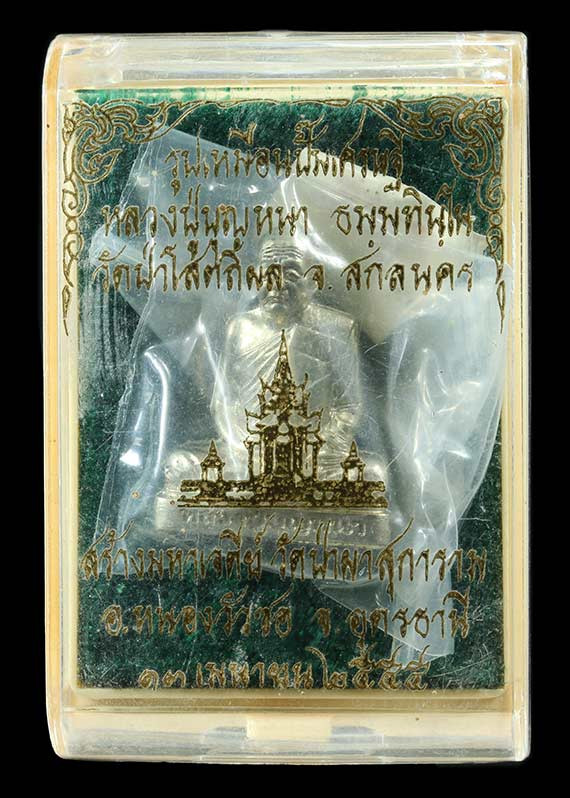 รูปเหมือนปั๊มเศรษฐี
หลวงปู่บุญหนา ธมฺมทินฺโน
วัดป่าโสตถิผล จ. สกลนคร
สร้างมหาเจดีย์ วัดป่าผาสุการาม
อ.หนองวัวซอ จ อุดรธานี
๑๓ เมษายน ๒๕๕๕